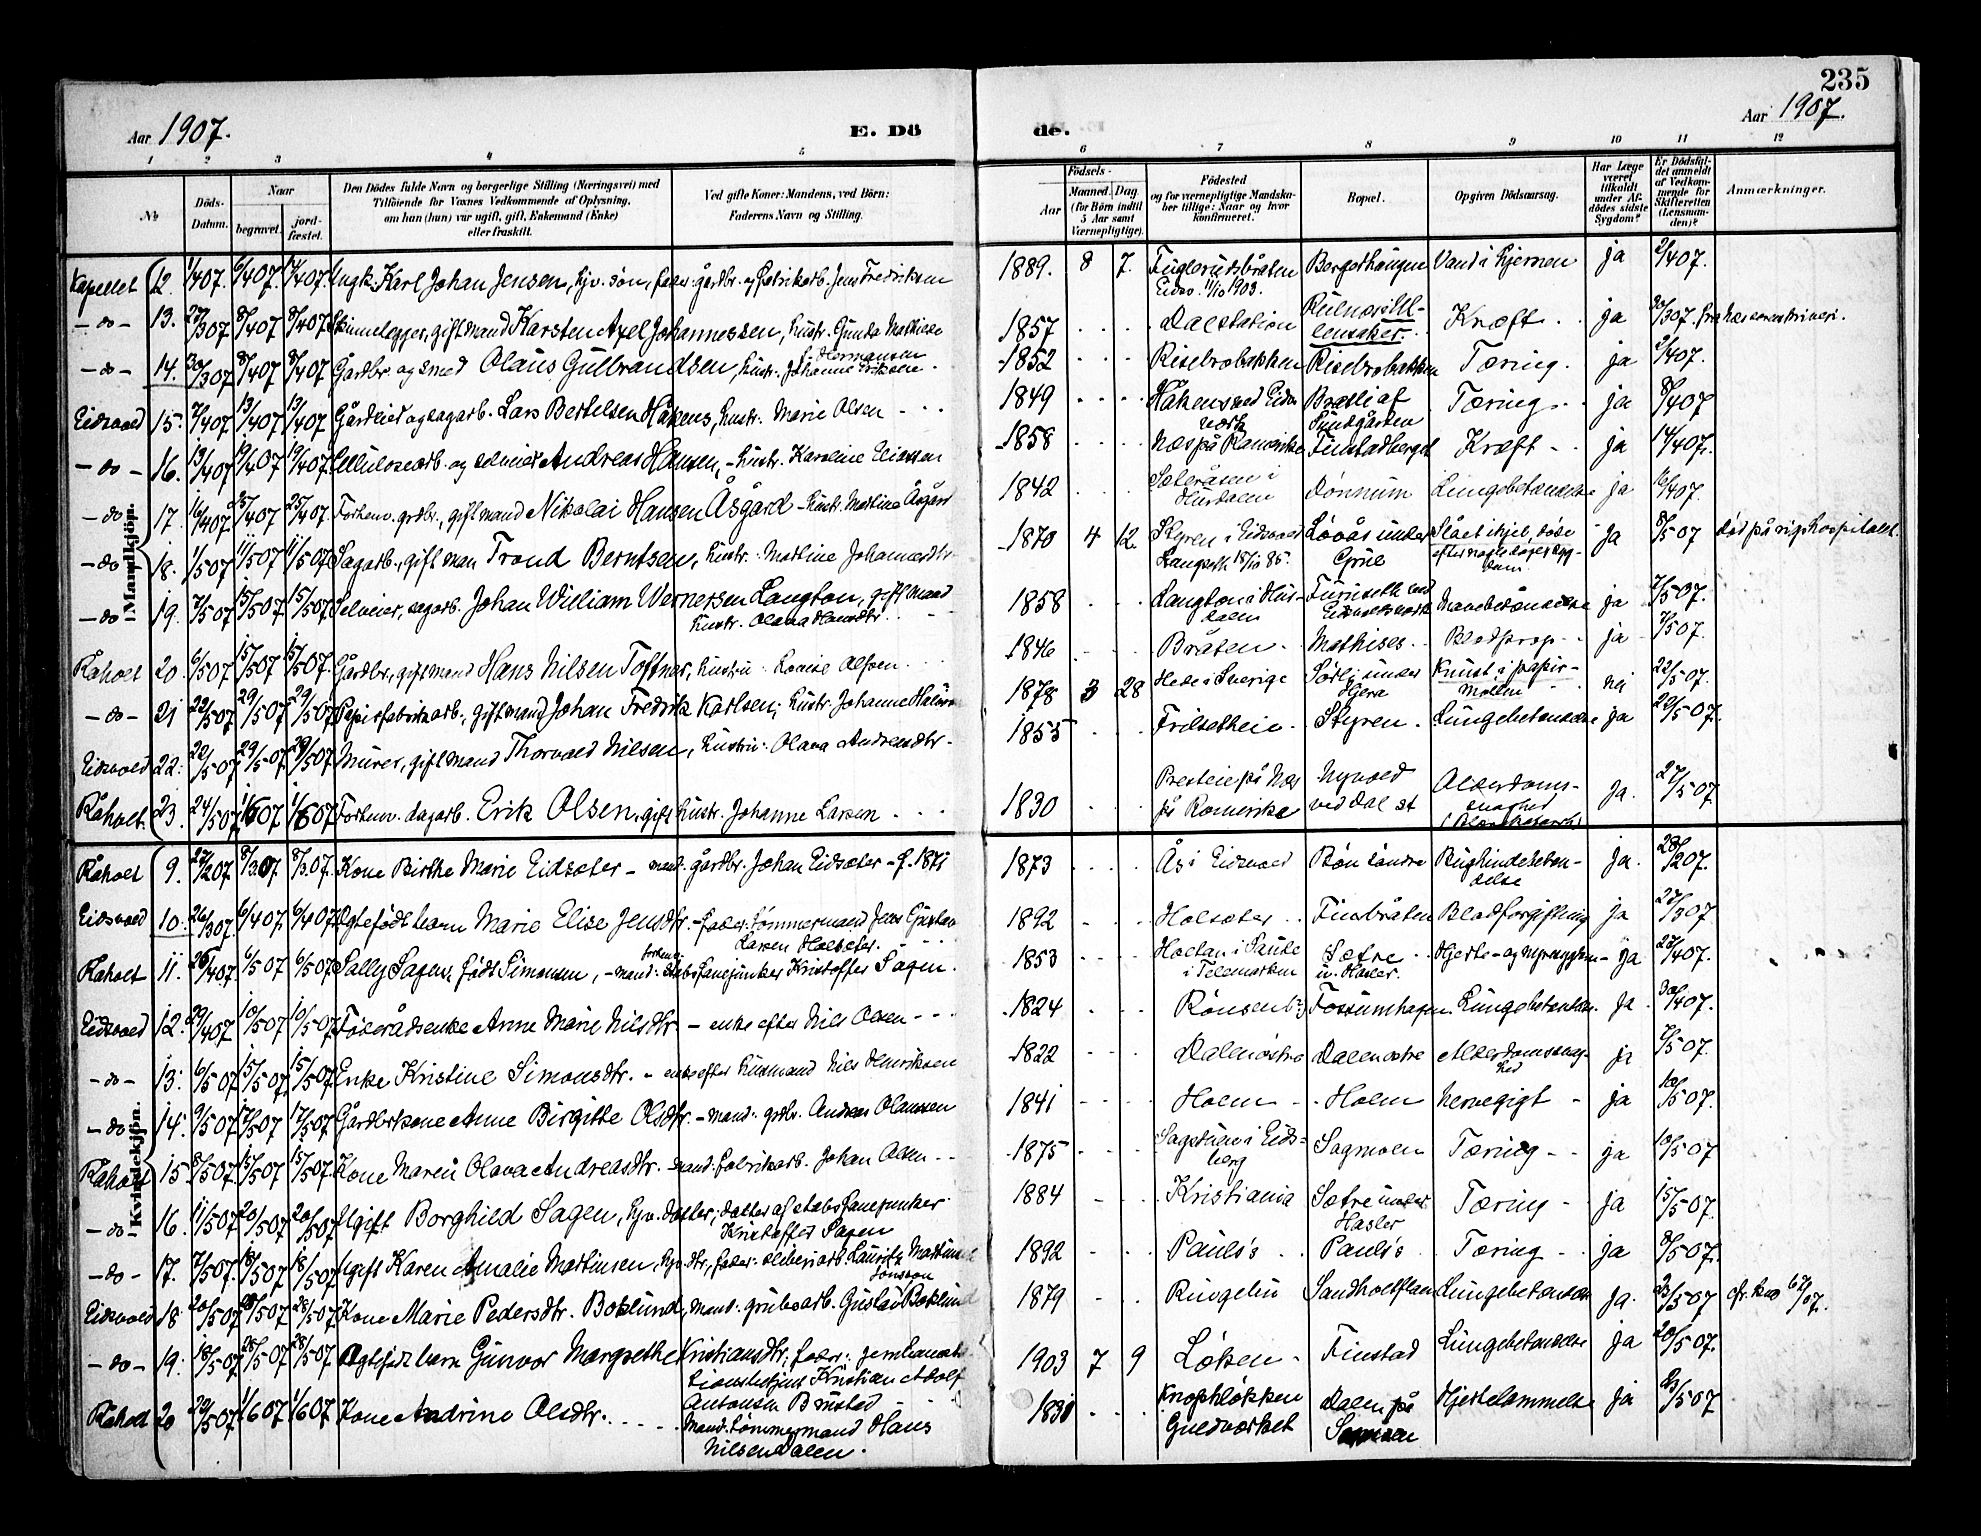 235
Aar 1907.
E. Dö
de.
Aar 1907.
1 2 3 4 5 6 7 8 9 10 11 12
No
Döds-Datum.
Naar
begravet.
jord-fæstet.
Den Dödes fulde Navn og borgerlige Stilling (Næringsvei) med
Tilföiende for Voxnes Vedkommende af Oplysning,
om han (hun) var ugift, gift, Enkemand (Enke)
eller fraskilt.
Ved gifte Koner: Mandens, ved Börn:
Faderens Navn og Stilling.
Födsels-
Aar
Maaned.
Dag.
(for Börn indtil
5 Aar samt
Værnepligtige).
Födested
og for værnepligtige Mandska-
ber tillige: Naar og hvor
konfirmeret.
Bopæl.
Opgiven Dödsaarsag.
Har Læge
været
tilkaldt
under Af-
dödes sidste
Sygdom?
Er Dödsfal-
det anmeldt
af Vedkom-
mende for
Skifteretten
(Lensman-
den)?
Anmærkninger.
Mandkjön.
Kapellet 12. 1/4 07. 6/4 07. Ungk. Karl Johan Jensen, hjv. søn, fader: gårdbr. og fabrikarb. Jens Fredriksen 1889. 8 7. Fuglerudsbråten Bergerhaugen Vand i hjernen ja 2/4 07.
Eidsv. 11/10 1903.
- do - 13. 27/3 07 8/4 07 8/4 07 Skinnelegger, gift mand Karsten Axel Johannessen, hustr. Gunda Mathiesen 1857 Dal station Kræft ja
Ullensaker.
- do - 14. 30/3 07 8/4 07 8/4 07 Gårdbr. og smed Olaus Gulbrandsen, hustr. Johanne Eriksen 1852 Risebrobakken Risebrobakken Tæring. ja 2/4 07.
f. Hermansen
Eidsvold 15. 7/4 07 13/4 07 13/4 07 Gårdeier og sagarb. Lars Bertelsen Håkens, hustr. Marie Olsen 1849 Håkens ved Eidsv. Tæring ja 8/4 07
værk Sundgården
- do - 16. 13/4 07 19/4 07 19/4 07. Cellulosearb. og selveier Andreas Hansen, - hustr. Karoline Eliassen 1858 Næs på Romerike Finstadberget Kræft - ja 14/4 07.
- do - 17. 16/4 07. 25/4 07 25/4 07. Forhenv. grdbr., gift mand Nikolai Hansen Åsgård - hustr. Martine Åsgård 1842 Dønnum Lungebetændelse ja 16/4 07.
Hurdalen
- do - 18. 1/5 07 11/5 07 11/5 07 Sagarb., gift man Trond Berntsen, hustr. Martine Johannesdtr. 1870 4 12. Styren i Eidsvold Løvås under Slået ihjel, døde ja 8/5 07 død på rigshospitalet.
Langset 18/10 85. Grue efter nogle dages syg-
dom
- do - 19. 7/5 07 15/5 07 15/5 07. Selveier, sagarb. Johan William Wernersen Langton, gift mand 1858 Langton i Hur- Furuseth ved ja 7/5 07.
hustr. Olava Hansdtr. dalen Eidsvoldsværk
Råholt 20. 6/5 07 15/5 07 15/5 07. Gårdbr., gift mand Hans Nilsen Toftner, hustru: Lovise Olsen 1846 Bråten. Mathises Blodprop ja 7/5 07.
- do - 21 22/5 07 29/5 07 29/5 07 Papirfabrikarb., gift mand Johan Fredrik Karlsen; hustr. Johanne 1878 3 28 Hede i Sverige Sørli under Knust i papir- nei 22/5 07.
møllen
Eidsvold 22. 20/5 07 29/5 07 29/5 07 Murer, gift mand Thorvald Nilsen, hustru: Olava Andreasdtr. 1855 Frilsetheie Styren Lungebetændelse ja 20/5 07.
Råholt 23. 24/5 07 1/6 07 1/6 07 Forhenv. dagarb. Erik Olsen, gift hustr. Johanne Larsen 1830 Presteie på Næs Nyvold Alderdoms- ja. 27/5 07
på Romerike ved Dal st svaghed
Kvindekjön.
Råholt 9. 27/2 07. 8/3 07. 8/3 07. Kone Birthe Marie Eidsæter - mand: gårdbr. Johan Eidsæter - f. 1871 1873 Ås i Eidsvold Bøn søndre Bughindebetæn- ja. 28/2 07.
delse
Eidsvold 10. 26/3 07. 6/4 07. 6/4 07. Ægtefødt barn Marie Elise Jensdtr. - fader: tømmermand Jens Gustav 1892 Holsæter Finbråten Blodforgiftning ja 27/3 07
Larsen Holsæter.
Råholt 11. 26/4 07. 6/5 07 6/5 07. Sally Sagen, født Simonsen, - mand: forhenv. stabsfanejunker Kristoffer Sagen. 1853 Holtan i Saude Sætre Hjerte- og nyresygdom ja 27/4 07.
i Telemarken u. Hasler.
Eidsvold 12. 29/4 07 10/5 07 10/5 07 Føderådsenke Anne Marie Nilsdtr. - enke efter Nils Olsen 1824 Rønsen Fossumhagen. Lungebetændelse ja 30/4 07.
- do - 13. 6/5 07 15/5 07. 15/5 07 Enke Kristine Simonsdtr. - enke efter husmand Nils Henriksen 1822 Dalen østre Dalen østre Alderdomssvag- ja 7/5 07.
hed
- do - 14. 9/5 07 17/5 07 17/5 07 Gårdbr.kone Anne Birgitte Olsdtr. - mand: grdbr. Anders Olaussen 1841 Holm Holm Nervegigt - ja 10/5 07.
Råholt 15 8/5 07. 15/5 07 15/5 07. Kone Maren Olava Andreasdtr. mand: fabrikarb. Johan Olsen 1875 Sagstuen i Eids- Sagmoen Tæring ja 10/5 07
berg
- do - 16. 11/5 07 20/5 07 20/5 07 Ugift Borghild Sagen, hjv. datter; datter af stabsfanejunker 1884 Kristiania Sætre under Tæring - ja 15/5 07.
Kristoffer Sagen Hasler
- do - 17. 7/5 07. 18/5 07 18/5 07 Ugift Karen Amalie Martinsen, hjv. dtr., fader: sliberiarb. Lauritz Martinsen 1892 Pauls's Pauls's Tæring - ja 8/5 07.
Jonsson
Eidsvold 18 20/5 07 28/5 07 28/5 07 Kone Marie Pedersdtr. Boklund, mand: grubearb. Gustav Boklund 1879 Ringebu Sandholtflaen Lungebetændelse ja. 23/5 07
- do - 19. 18/5 07 28/5 07 28/5 07 Ægtefødt barn Gunvor Margrethe Kristiansdtr. fader: jernbanetele- 1903 7 9 Løken - Finstad Lungebetændelse ja 20/5 07.
Kristian Adolf
Antonsen Brustad
Råholt 20 22/5 07 1/6 07 1/6 07 Kone Andrine Olsdtr. Mand: tømmermand Hans Knophløkken Dalen på Hjertelammelse ja 23/5 07
Nilsen Dalen. Guldværket